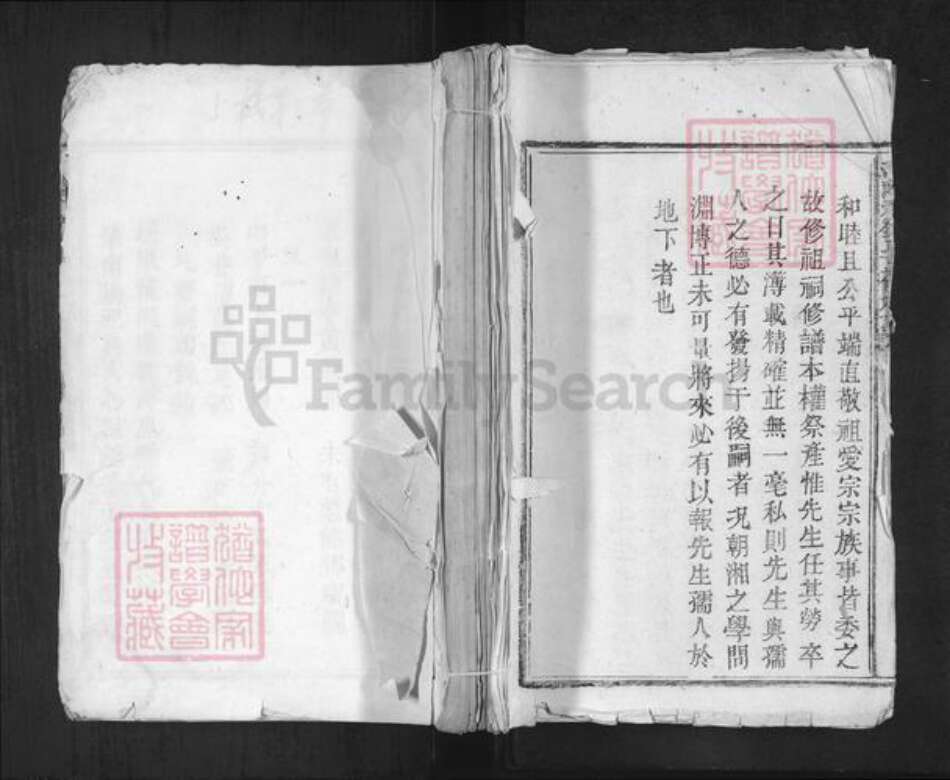 和睦且公平端直敬祖愛宗宗族事皆委之
故修祖祠修譜本權祭產惟先生任其勞卒
之日其簿載精確並無一毫私則先生與孺
人之德必有發揚于後嗣者况朝湘之學問
淵博正未可量將來必有以報先生孺人於
地下者也
譜學會
收藏
FamilySearch